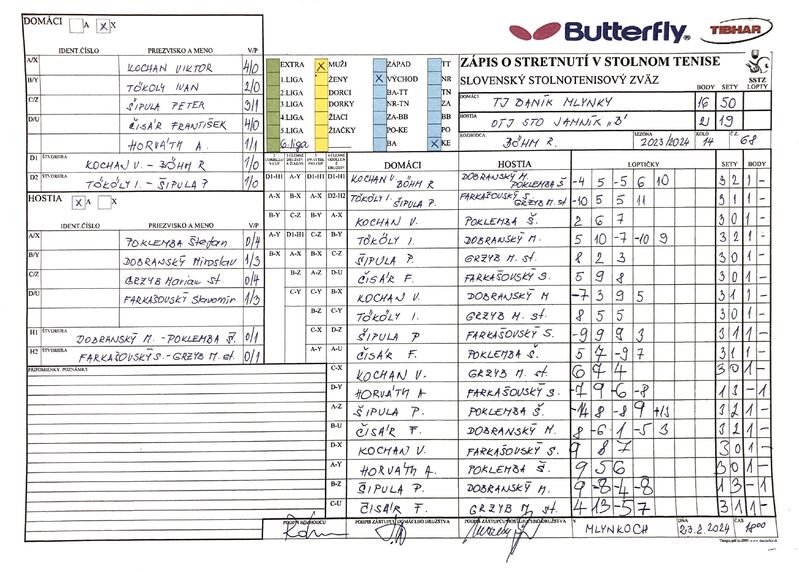 DOMÁCI A X X
Butterfly TIBHAR
IDENT.ČÍSLO PRIEZVISKO A MENO V/P
A/X KOCHAN VIKTOR 4/0
B/Y TÖKÖLY IVAN 2/0
C/Z ŠIPULA PETER 3/1
D/U ČISÁR FRANTIŠEK 4/0
HORVÁTH A. 1/1
D1 ŠTVORHRA KOCHAN V. - BÖHM R 1/0
D2 ŠTVORHRA TÖKÖLY I. - ŠIPULA P 1/0
EXTRA X MUŽI ZÁPAD TT
1.LIGA ŽENY X VÝCHOD NR
2.LIGA DORCI BA-TT TN
3.LIGA DORKY NR-TN ZA
4.LIGA ŽIACI ZA-BB BB
5.LIGA ŽIAČKY PO-KE PO
6.liga BA X KE
ZÁPIS O STRETNUTÍ V STOLNOM TENISE
SLOVENSKÝ STOLNOTENISOVÝ ZVÄZ SSTZ
BODY SETY LOPTY
DOMÁCI TJ BANÍK MLYNKY 16 50
HOSTIA OTJ STO JAMNÍK "B" 2 19
ROZHODCA BÖHM R. SEZÓNA 2023/2024 KOLO 14 Č.Z. 68
HOSTIA X A X
IDENT.ČÍSLO PRIEZVISKO A MENO V/P
A/X POKLEMBA Štefan 0/4
B/Y DOBRANSKÝ Miroslav 1/3
C/Z GRZYB Marian st. 0/4
D/U FARKAŠOVSKÝ Slavomír 1/3
H1 ŠTVORHRA DOBRANSKÝ M. - POKLEMBA Š. 0/1
H2 ŠTVORHRA FARKAŠOVSKÝ S. - GRZYB M. st. 0/1
PRIPOMIENKY, POZNÁMKY
DOMÁCI HOSTIA LOPTIČKY SETY BODY
D1-H1 A-Y D1-H1 D1-H1 KOCHAN V. BÖHM R DOBRANSKÝ M. POKLEMBA Š -4 5 -5 6 10 3 2 1 -
A-X B-X A-X D2-H2 TÖKÖLY I. ŠIPULA P. FARKAŠOVSKÝ S. GRZYB M. st -10 5 5 11 3 1 1 -
B-Y C-Z B-Y A-X KOCHAN V. POKLEMBA Š. 2 6 7 3 0 1 -
A-Y D1-H1 C-Z B-Y TÖKÖLY I. DOBRANSKÝ M. 5 10 -7 -10 9 3 2 1 -
B-X A-X B-X C-Z ŠIPULA P. GRZYB M. st. 8 2 3 3 0 1 -
B-Z A-Z D-U ČISÁR F. FARKAŠOVSKÝ S. 5 9 8 3 0 1 -
C-Y C-Y B-X KOCHAN V. DOBRANSKÝ M -7 3 9 5 3 1 1 -
B-Z C-Y TÖKÖLY I. GRZYB M. st. 8 5 5 3 0 1 -
C-X D-Z ŠIPULA P FARKAŠOVSKÝ S. -9 9 9 3 3 1 1 -
A-Y A-U ČISÁR F. POKLEMBA Š. 5 7 -9 7 3 1 1 -
C-X KOCHAN V. GRZYB M. st. 6 7 4 3 0 1 -
D-Y HORVÁTH A FARKAŠOVSKÝ S. -7 9 -6 -8 1 3 - 1
A-Z ŠIPULA P. POKLEMBA Š. -14 8 -8 9 3 2 1 -
B-U ČISÁR F. DOBRANSKÝ M. 8 -6 1 -5 3 3 2 1 -
D-X KOCHAN V. FARKAŠOVSKÝ S. 9 8 7 3 0 1 -
A-Y HORVÁTH A. POKLEMBA Š. 9 5 6 3 0 1 -
B-Z ŠIPULA P. DOBRANSKÝ M. 9 -8 -4 -8 1 3 - 1
C-U ČISÁR F. GRZYB M. st 4 13 -5 7 3 1 1 -
PODPIS ROZHODCU PODPIS ZÁSTUPCU DOMÁCEHO DRUŽSTVA PODPIS ZÁSTUPCU HOSŤUJÚCEHO DRUŽSTVA V MLYNKOCH DŇA 23.2.2024 ČAS